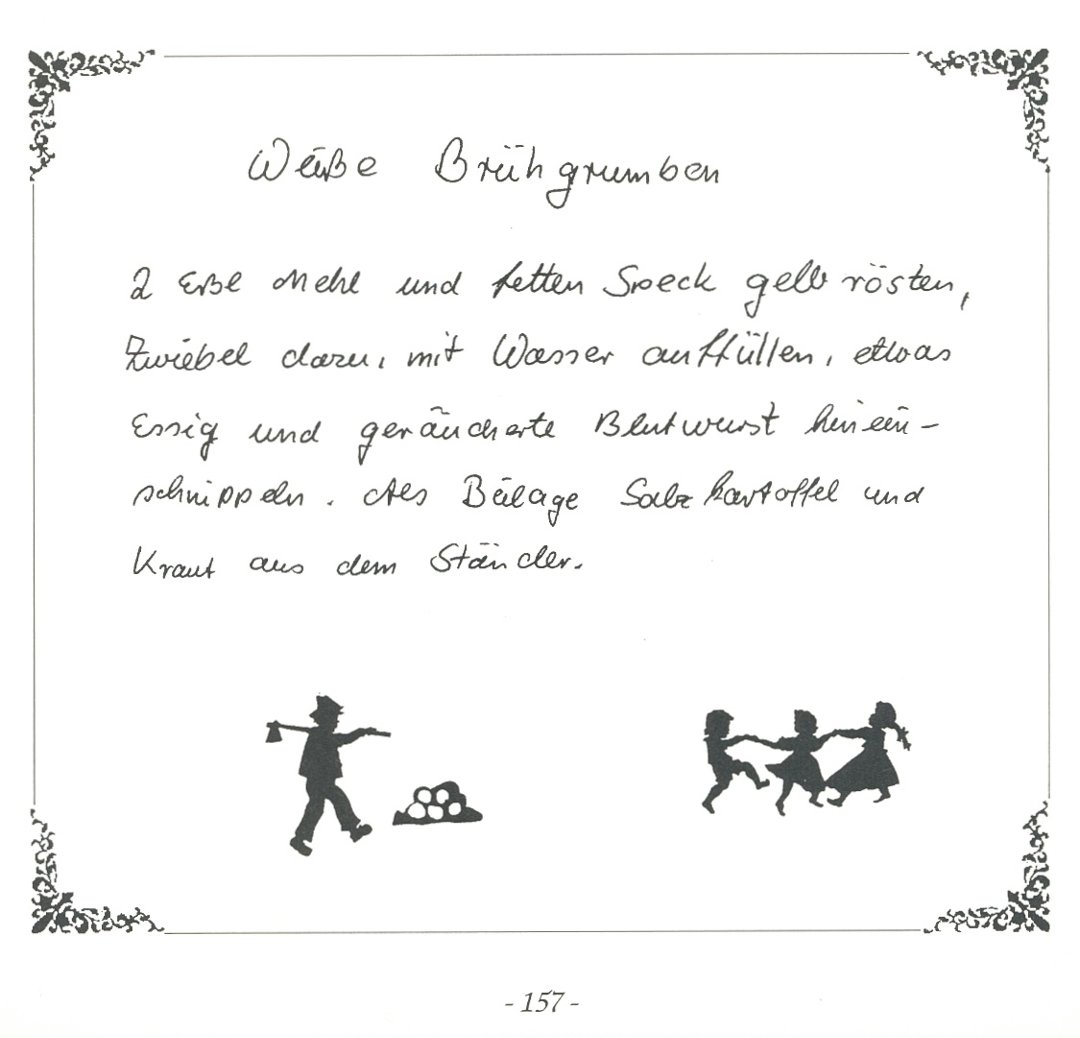 Weiße Brühgrumben
2 Eßl Mehl und fetten Speck gelb rösten,
Zwiebel dazu, mit Wasser auffüllen, etwas
Essig und geräucherte Blutwurst hinein-
schnippeln. Als Beilage Salzkartoffel und
Kraut aus dem Ständer.
- 157 -